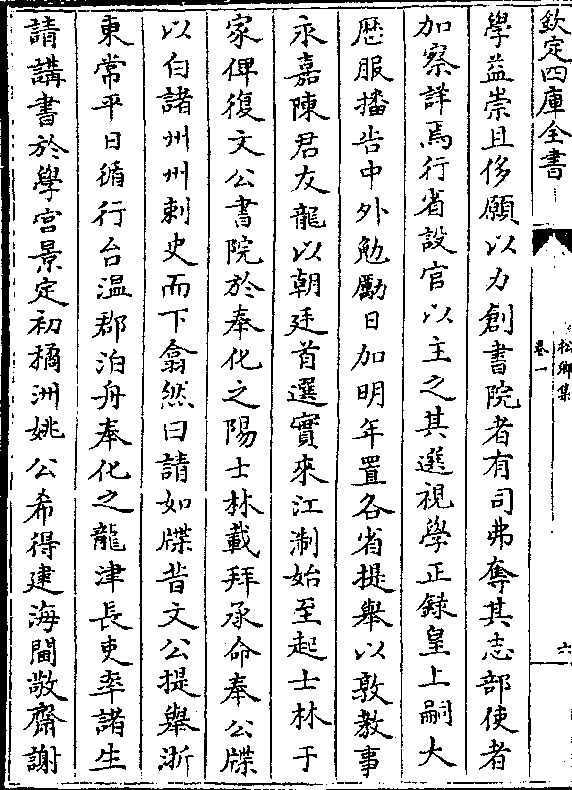 欽定四庫全書
松鄉集
卷一
六
學益崇且侈願以力創書院者有司弗奪其志部使者
加察詳焉行省設官以主之其選視學正錄皇上嗣大
歴服播告中外勉勵日加明年置各省提舉以敦教事
永嘉陳君友龍以朝廷首選實來江淛始至起士林于
家俾復文公書院於奉化之陽士林載拜承命奉公牒
以白諸州州刺史而下翕然曰請如牒昔文公提舉浙
東常平日循行台溫郡泊舟奉化之龍津長吏率諸生
請講書於學宮景定初橘洲姚公希得建海閫敬齋謝